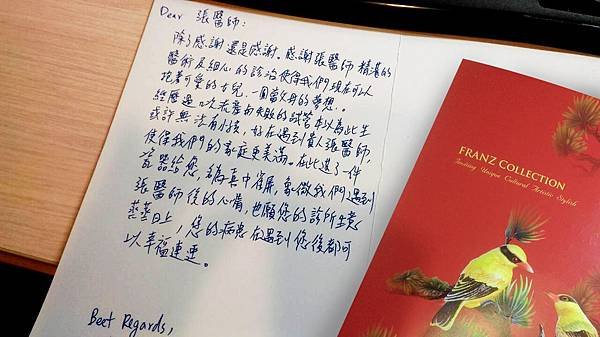 Dear 張醫師:
除了感謝還是感謝。感謝張醫師精湛的
醫術及細心的診治使得我們現在可以
抱著可愛的女兒,一圓當父母的夢想。
經歷過 次 失敗的試管本以為此生
或許無法有小孩,好在遇到貴人張醫師,
使得我們的家庭更美滿。在此送了一件
瓷器給您,名為真中雀屏,象徵我們遇到
張醫師後的心情,也願您的診所生意
蒸蒸日上,您的病患在遇到您後都可
以幸福連連。
Best Regards,
FRANZ COLLECTION
Inviting Unique Cultural Artistic Stylish